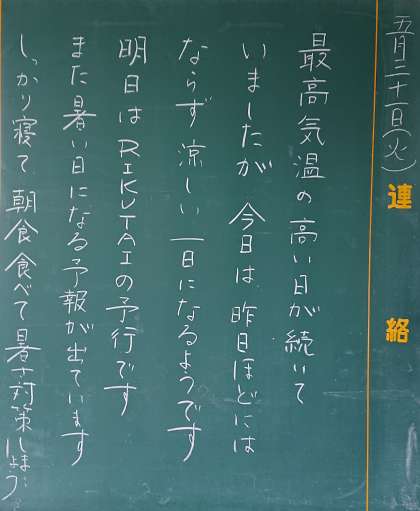 五月二十一日(火)
連絡
最高気温の高い日が続いて
いましたが 今日は 昨日ほどには
ならず 涼しい 一日になるようです
明日は RIKUTAIの予行です
また 暑い日になる予報が出ています
しっかり寝て 朝食食べて 暑さ対策しましょう